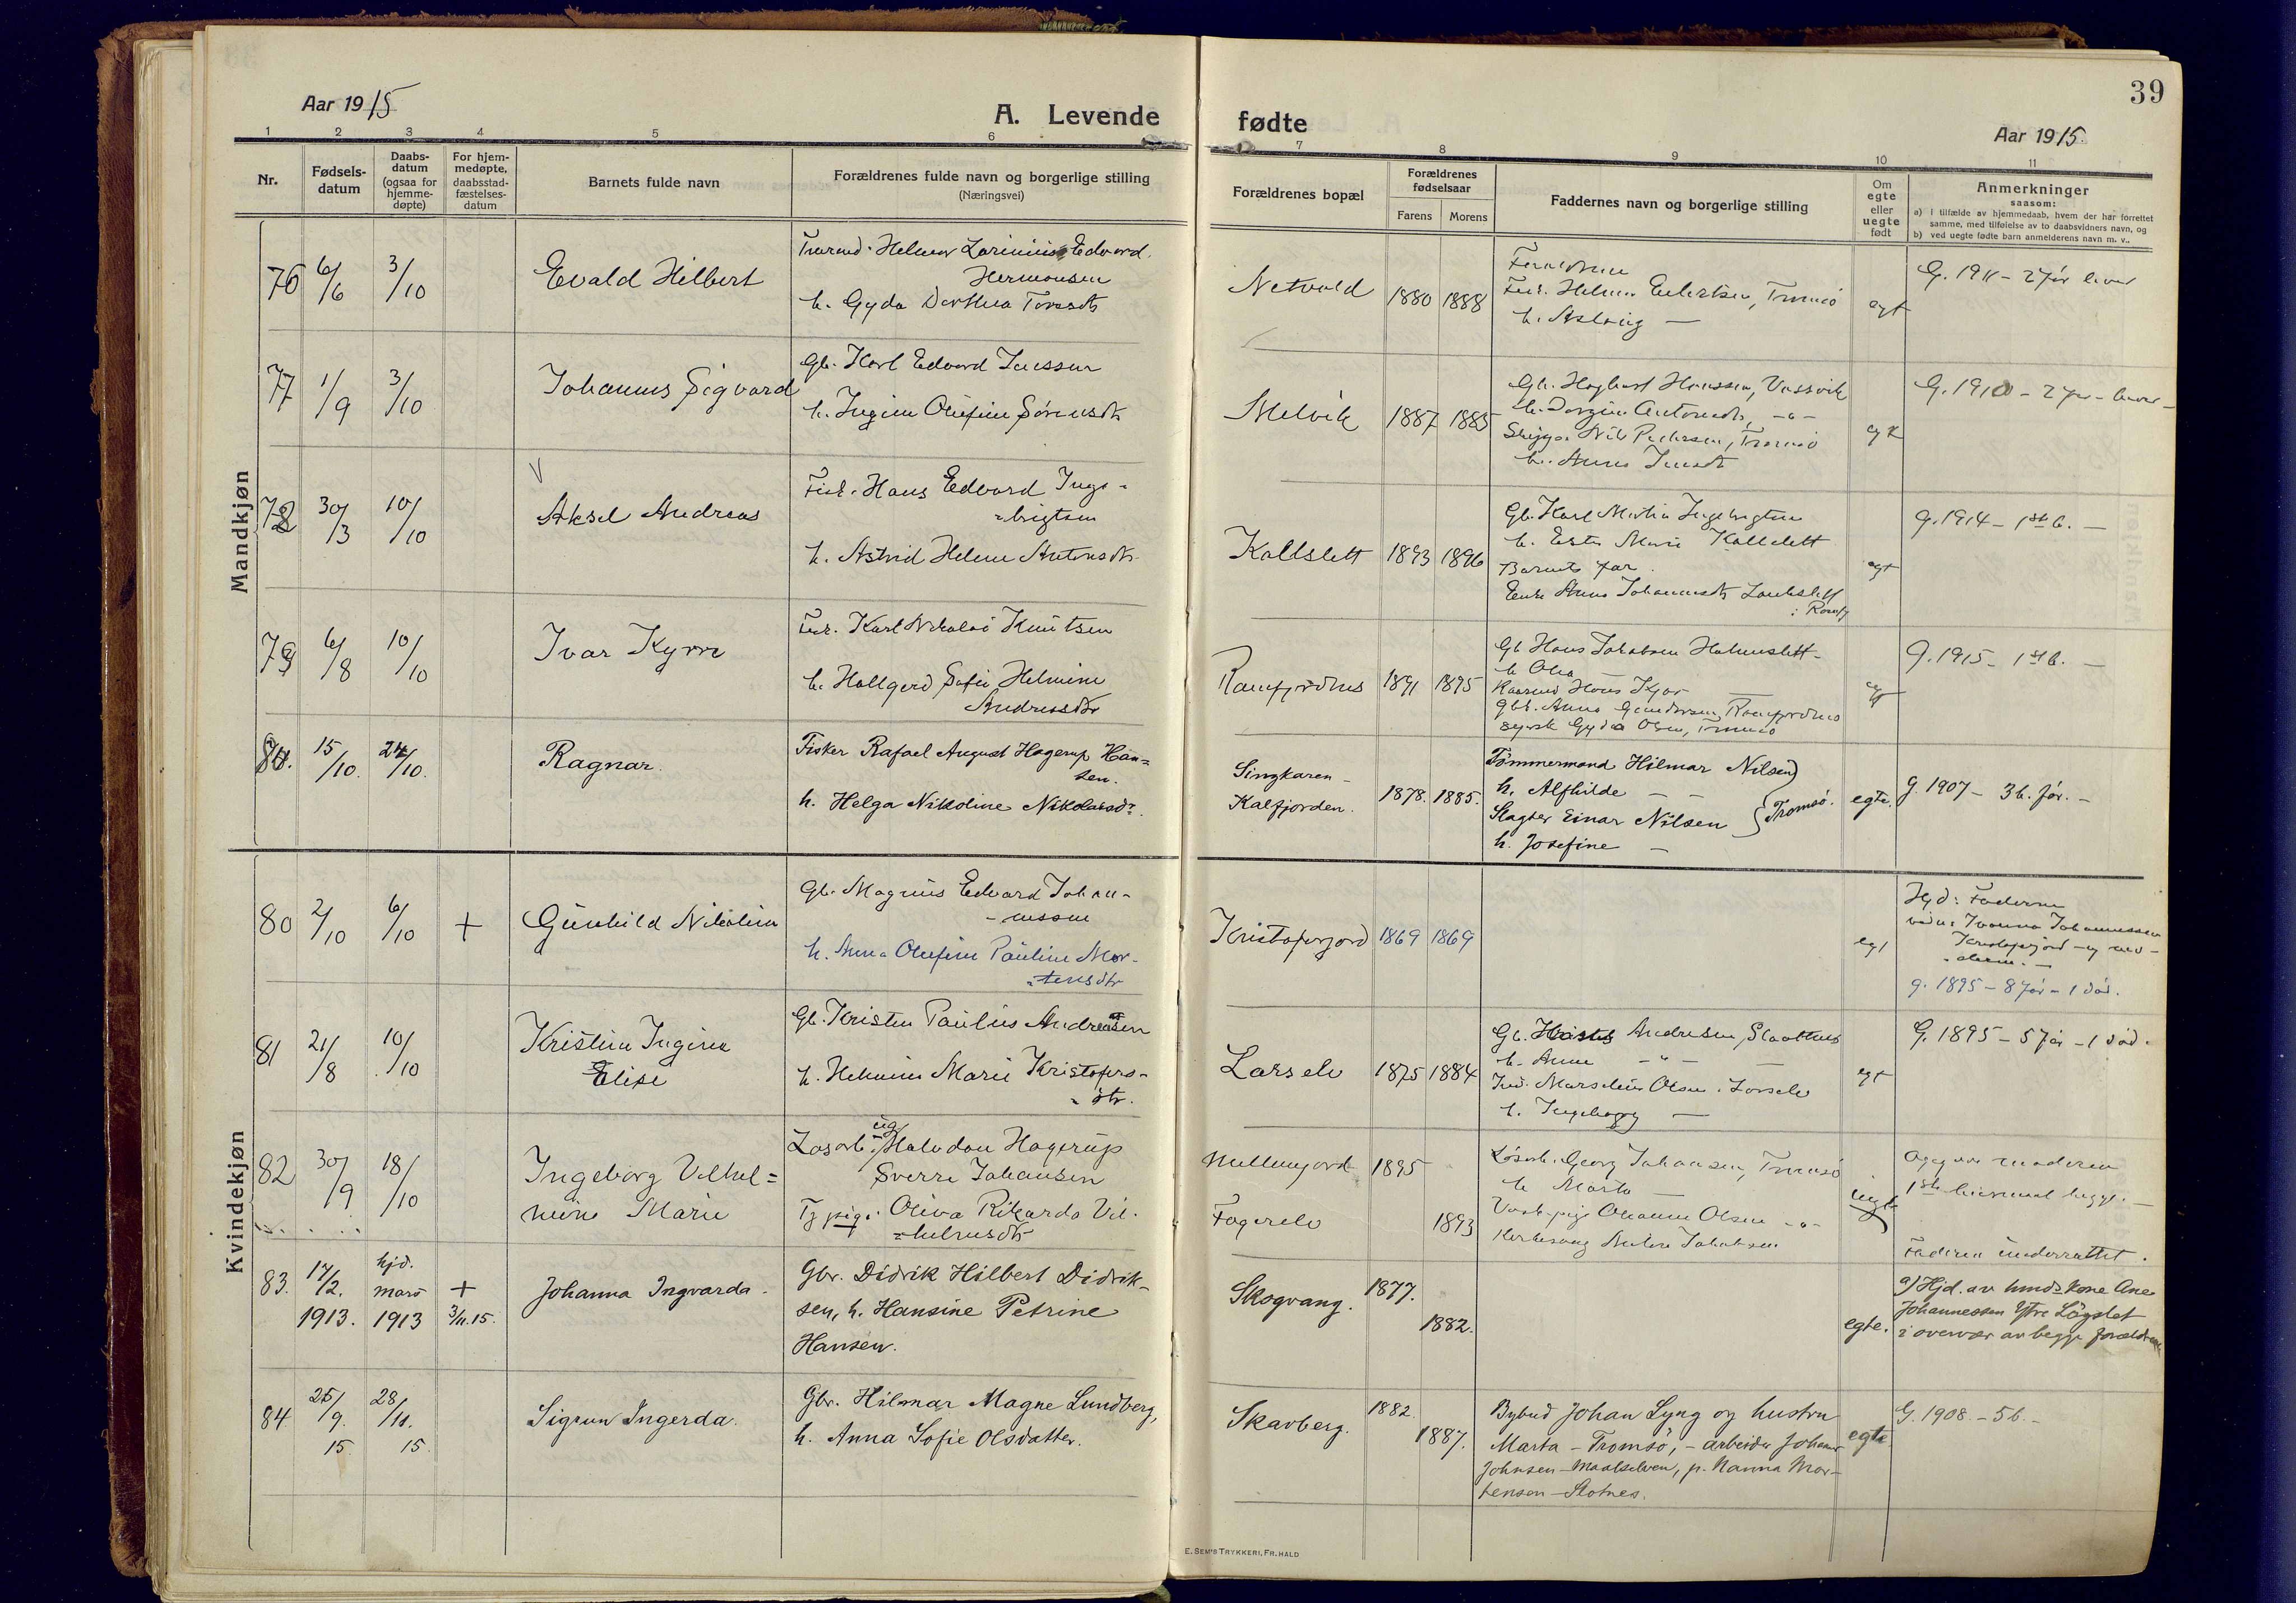 39
Aar 1915
A. Levende
fødte
Aar 1915.
1 2 3 4 5 6 7 8 9 10 11
Nr.
Fødsels-
datum
Daabs-
datum
(ogsaa for
hjemme-
døpte)
For hjem-
medøpte,
daabsstad-
fæstelses-
datum
Barnets fulde navn
Forældrenes fulde navn og borgerlige stilling
(Næringsvei)
Forældrenes bopæl
Forældrenes
fødselsaar
Farens Morens
Faddernes navn og borgerlige stilling
Om
egte
eller
uegte
født
Anmerkninger
saasom:
a) i tilfælde av hjemmedaab, hvem der har forrettet
samme, med tilføielse av to daabsvidners navn, og
b) ved uegte fødte barn anmelderens navn m. v..
Mandkjøn
76 6/6 3/10 Evald Hilbert
Edvard
Hermansen
h. Gyda Dorthea
1880 1888
Tromsø
h. Aslaug —
egt
G. 1911 - 2 før lever
77 1/9 3/10 Johannes Sigvard
Gb. Karl Edvard Jenssen
h. Ingine Olufine Sørensdtr
Melvik 1887 1885
Gb. Hagbart Hanssen, Vassvik
Nils Pedersen, Tromsø
h. Anna Jensdtr
egt
G. 1910 - 2 før - lever -
78 30/3 10/10 Aksel Andreas
Fisk. Hans Edvard Inge-
-brigtsen
h. Astrid Helene Antonsdtr.
Kallslett 1893 1896
Gb. Karl Ingebrigtsen
h. Marie Kallslett
Barnets far.
Enke Anna Johannesdtr
egt
g. 1914 - 1ste b. —
79 6/8 10/10 Ivar Kyrre
Fisk. Karl Nikolai Knutsen
h. Hallgerd Sofie Helmine
Andreasdtr
Ramfjordnes 1891 1895
Gb Hans Jakobsen Holmeslett -
Hans Kjar
Anna Gundersen, Ramfjordnes
Gyda Olsen, Tromsø
g. 1915 - 1ste b. —
80. 15/10. 24/10. Ragnar.
Fisker Rafael August Hagerup Han=
sen.
h. Helga Nikoline Nikolaisdr.
Singkaren -
Kalfjorden. 1878. 1885.
Tømmermand Hilmar Nilsen
h. Alfhilde — —
Slagter Einar Nilsen
h. Josefine —
Tromsø.
egte.
g. 1907 - 3 b. før. -
Kvindekjøn
80 2/10 6/10 + Gunhild Nikoline
Gb. Magnus Edvard Johan-
-nessen
h. Anna Olufine Pauline Mor-
-tensdtr
Kristoferjord 1869 1869
egt
Hjd: Faderen
Johannessen
Kristoferjord
g. 1895 - 8 før - 1 død.
81 21/8 10/10 Kristine Ingina
Elise
Gb. Kristen Paulus Andreassen
h. Helmine Marie Kristofers-
-dtr.
Larselv 1875 1884
Andresen, Slaattnes
h. Anne - " -
Marselius Olsen, Larselv
h. Ingeborg —
egt
G. 1895 - 5 før - 1 død.
82 30/9 18/10 Ingeborg Vilhel=
mine Marie
Løsarb. ug. Halvdan Hagerup
Sverre Johansen
Tj pige. Oliva Rikarda Vil-
-helmsdtr
1895
Fagerelv 1893
Løsarb. Georg Johansen, Tromsø
h Marta —
Olsen - " -
uegte
Opgave moderen
Faderen underrettet.
83. 17/2. 1913. hjd. mars 1913 + 3/11.15. Johanna Ingvarda.
Gbr. Didrik Hilbert Didrik-
sen, h. Hansine Petrine
Hansen.
Skogvang. 1877. 1882.
egte.
a) Hjd. av kmds kone Ane
Johannessen Ytre Løgslet
i overvær av begge forældrene
84 25/9. 15. 28/11. 15. Sigrun Ingerda.
Gbr. Hilmar Magne Lundberg,
h. Anna Sofie Olsdatter.
Skavberg. 1882. 1887.
Bybud Johan Lyng og hustru
Marta - Tromsø, - arbeider Johan
Johnsen - Maalselven, p. Nanna Mor-
tensen - Slotnes.
egte.
G. 1908. - 5 b. -
E. SEM'S TRYKKERI, FR.HALD